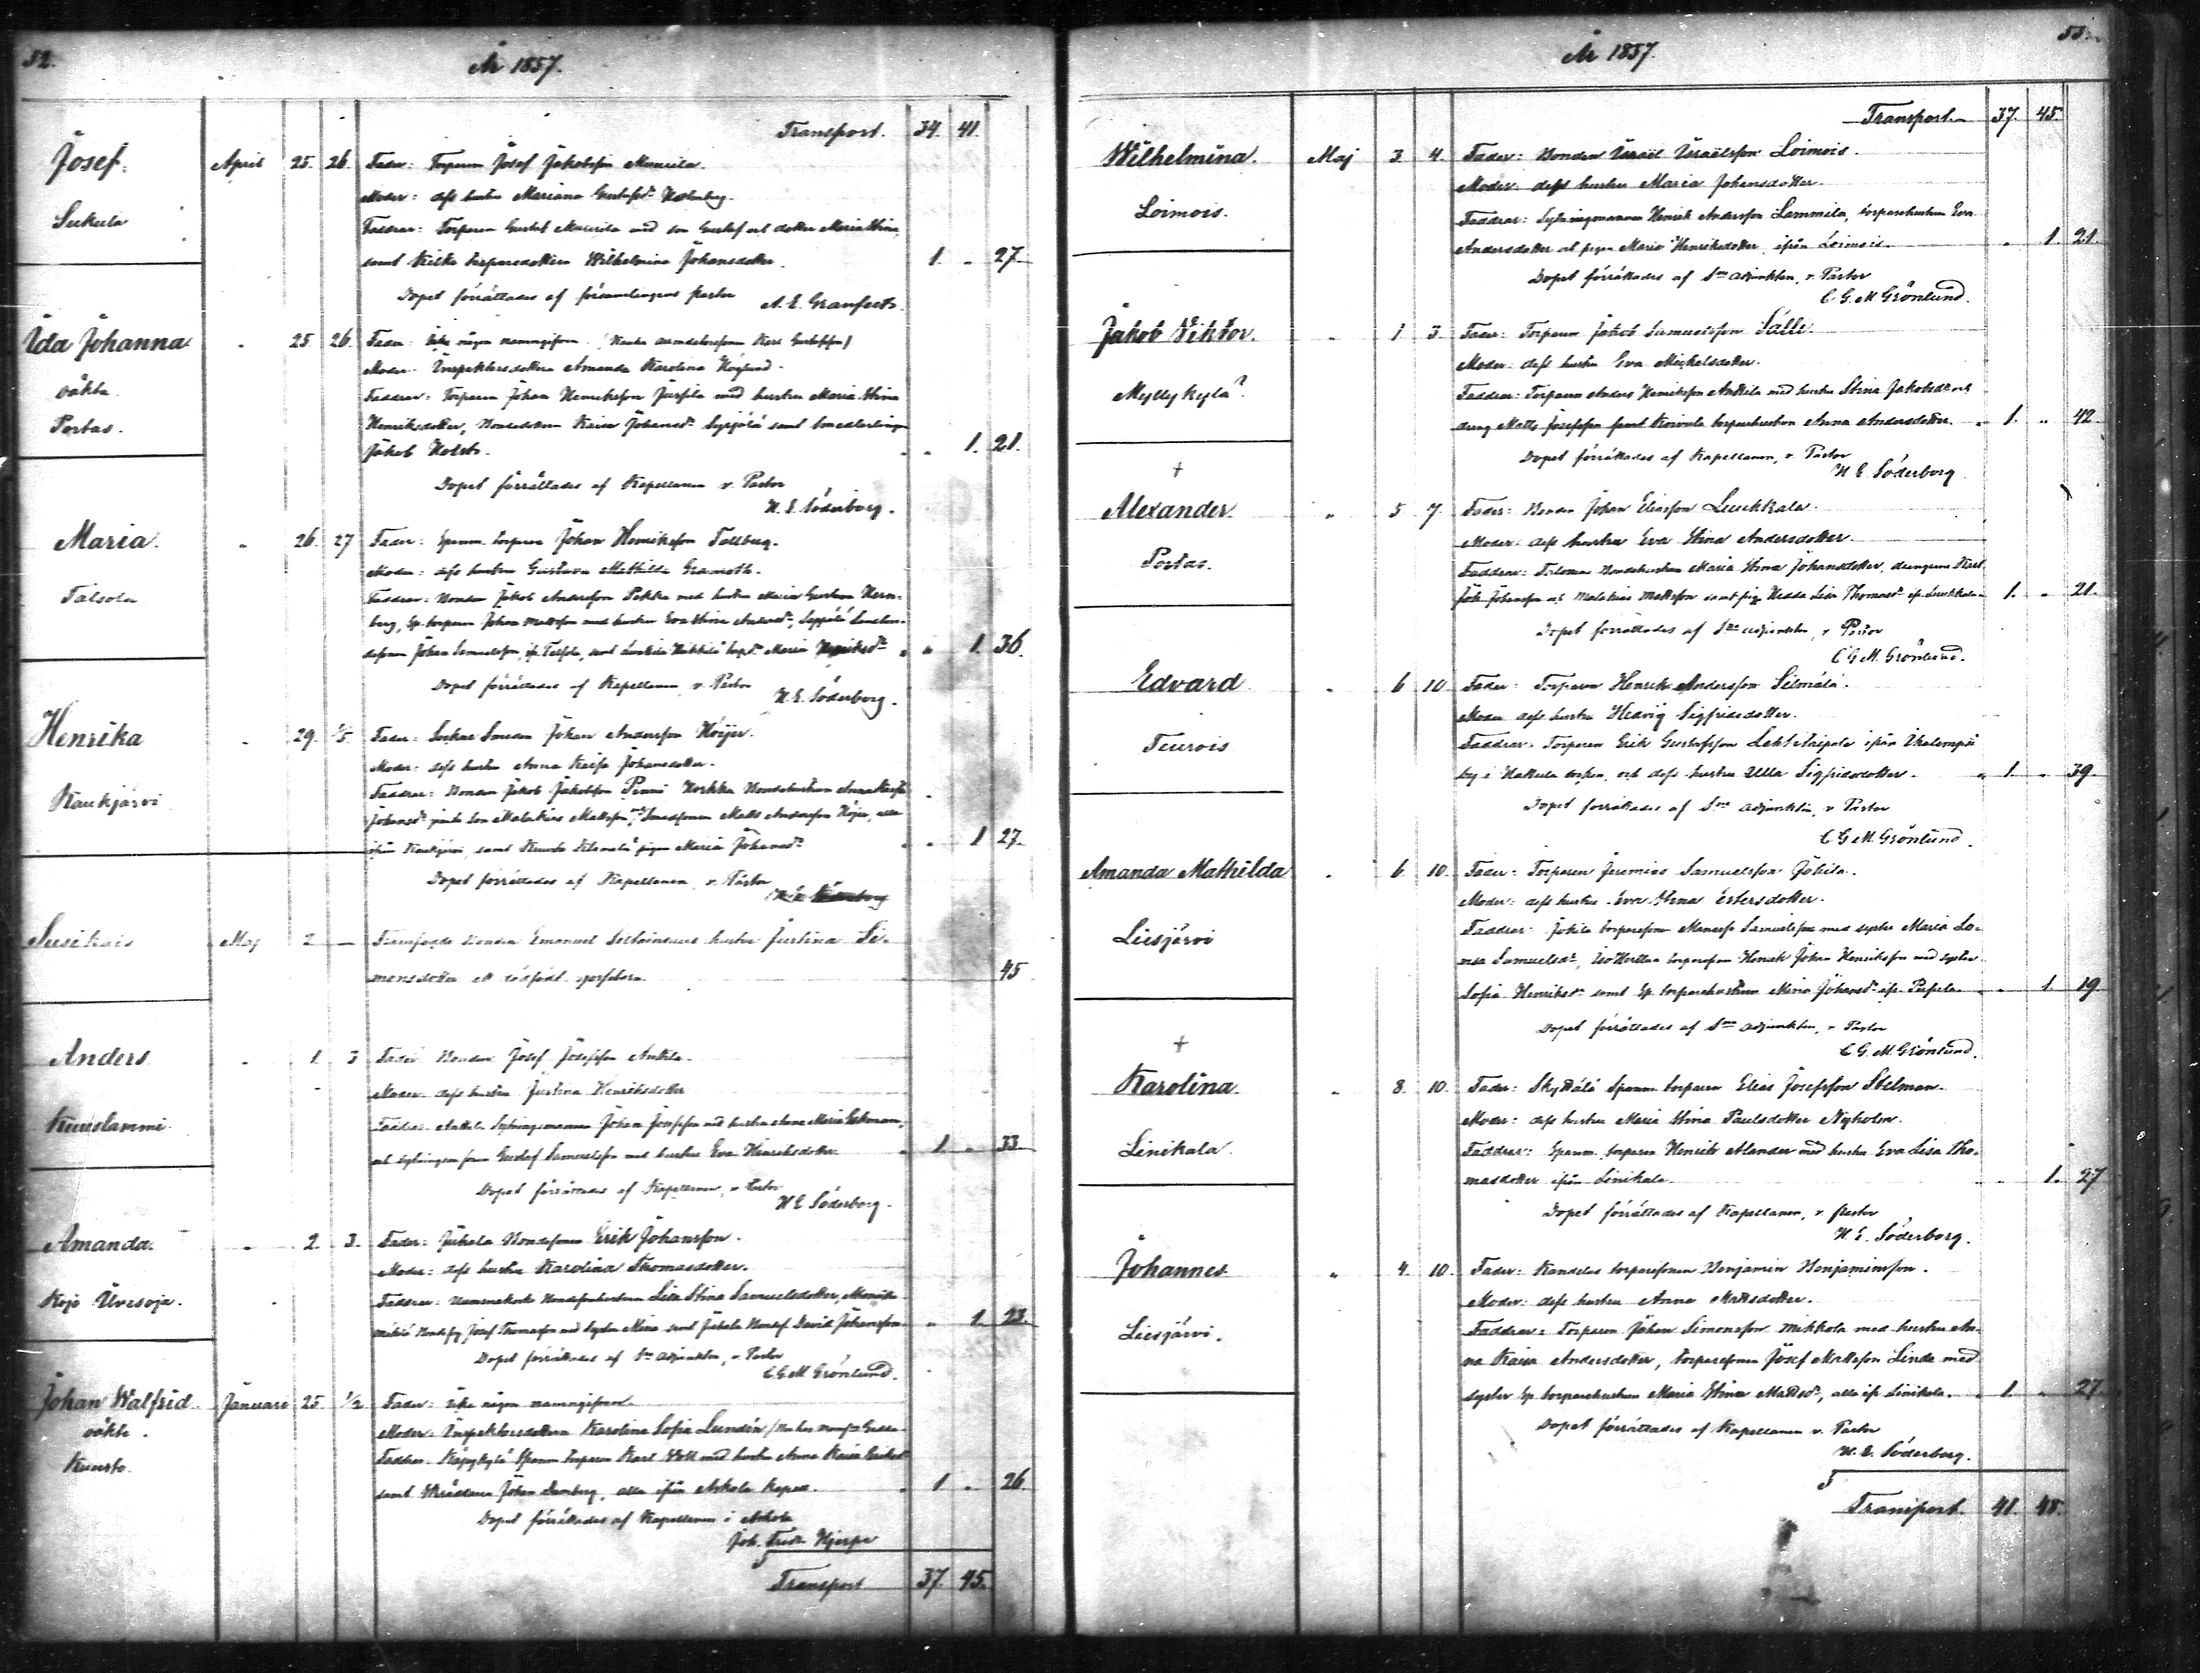 52.
År 1857.
Transport. 34. 41.
Josef. April 25. 26. Fader: Torparen Josef Jakobsson
Moder: dess hustru Mariana Gustafsdr
Sukula
Faddrar: Torparen Gustaf med son Gustaf och dotter Maria Stina,
samt torparedottren Wilhelmina Johansdotter. 1. " 27
Dopet förrättades af församlingens pastor
A. E. Granfelt.
Ida Johanna " 25 26. Fader: Icke någon namngifven
oäkta
Moder: Inspektorsdottren Amanda Karolina Höglund.
Portas.
Faddrar: Torparen Johan Henriksson med hustru Maria Stina
Henriksdotter, Kaisa Johansdr samt
Jakob " 1. 21.
Dopet förrättades af Kapellanen v. Pastor
H. E. Söderborg.
Maria. " 26. 27 Fader: Spanm. torparen Johan Henriksson Tallberg.
Moder: dess hustru Gustava Mathilda
Talsola
Faddrar: Bonden Jakob Andersson Pekka med hustru Maria Gustava
berg, Sp. torparen Johan Mattsson med hustru Eva Stina
Johan Samuelsson, samt Maria " 1. 36.
Dopet förrättades af Kapellanen v. Pastor
H. E. Söderborg.
Henrika " 29. 1/5 Fader: Johan Andersson Höijer.
Moder: dess hustru Anna Kaisa Johansdotter.
Kaukjärvi
Faddrar: Bonden Jakob Jakobsson Penni
Johansdr son Malakias Mattsson, Matts Andersson Höijer, alla
ifrån Kaukjärvi, samt pigan Maria Johansdr " 1 27.
Dopet förrättades af Kapellanen v. Pastor
H. E. Söderborg
Susikais Maj 2 — Framfödde bonden Emanuel hustru Justina Si-
monsdotter ett dödfödt gossebarn. 45
Anders. " 1. 3 Fader: Bonden Josef Josefsson Anttila.
Moder: dess hustru Justina Henriksdotter
Kuuslammi.
Faddrar: Anttila Sytningsmannen Johan Josefsson med hustru Anna Maria
och Gustaf Samuelsson med hustru Eva Henriksdotter. 1. " 33
Dopet förrättades af Kapellanen, v. Pastor
H E Söderborg.
Amanda. " 2. 3. Fader: Jukola Bondesonen Erik Johansson.
Moder: dess hustru Karolina Thomasdotter.
Kojo Uvesoja.
Faddrar: Lisa Stina Samuelsdotter,
Josef Thomasson med syster Mina samt Jukola David Johansson " 1. 23.
Dopet förrättades af Sne adjunkten, v. Pastor
C G M Grönlund.
Johan Walfrid. Januari 25. 1/2 Fader: icke någon namngifven.
oäkta.
Moder: Inspektorsdottren Karolina Sofia Lundén
Kuusto.
Faddrar: Spanm. torparen Karl Wolt med hustru Anna Kaisa
samt Skräddaren Johan, alla ifrån Kapell. 1 " 26.
Dopet förrättades af Kapellanen i
Joh. Fredr. Hjerpe
Transport 37. 45.
53.
År 1857.
Transport. 37. 45.
Wilhelmina. Maj 3. 4. Fader: Bonden Israël Israëlsson Loimois.
Moder: dess hustru Maria Johansdotter.
Loimois.
Faddrar: Sytningsmannen Henrik Andersson Lammila, torparehustrun Eva
Andersdotter och pigan Maria Henriksdotter, ifrån Loimois. " 1. 21.
Dopet förrättades af Sne adjunkten, v. Pastor
C. G. M Grönlund.
Jakob Viktor. " 1 3. Fader: Torparen Jakob Samuelsson Sälli.
Moder: dess hustru Eva Mickelsdotter.
Myllykylä?
Faddrar: Torparen Anders Henriksson Anttila med hustru Stina Jakobsdr och
dreng Matts Josefsson samt Koivula torparehustrun Anna Andersdotter. 1. " 42
Dopet förrättades af Kapellanen, v. Pastor
H E Söderborg
+
Alexander. " 5 7. Fader: Bonden Johan Eliasson Luukkala.
Moder: dess hustru Eva Stina Andersdotter.
Portas.
Faddrar: Bondehustrun Maria Stina Johansdotter, drengarne Karl
Joh. Johansson och Malakias Mattsson samt pig. Hedda Lisa Thomasdr ifr. Luukkala. 1. " 21.
Dopet förrättades af Sne adjunkten, v. Pastor
C G M. Grönlund.
Edvard. " 6 10 Fader: Torparen Henrik Andersson Silmälä.
Moder: dess hustru Hedvig Sigfridsdotter.
Teurois
Faddrar: Torparen Erik Gustafsson ifrån
by i Hattula socken, och dess hustru Ulla Sigfridsdotter. 1. " 39.
Dopet förrättades af Sne adjunkten, v. Pastor
C G M. Grönlund.
Amanda Mathilda " 6. 10. Fader: Torparen Jeremias Samuelsson Jokila.
Moder: dess hustru Eva Stina Estersdotter.
Liesjärvi
Faddrar: Jokila torparesonen Manasse Samuelsson med syster Maria Lo-
visa Samuelsdr, torparesonen Henrik Johan Henriksson med syster
Sofia Henriksdr samt Sp. torparehustrun Mina Johansdr " 1. 19.
Dopet förrättades af Sne adjunkten, v. Pastor
C G. M. Grönlund.
+
Karolina. " 8. 10. Fader: Skyttälä Spanm. torparen Elias Josefsson Stelman.
Moder: dess hustru Maria Stina Paulsdotter Nyholm.
Linikala.
Faddrar: Spanm. torparen Henrik Alander med hustru Eva Lisa Tho-
masdotter ifrån Linikala. " 1. 27
Dopet förrättades af Kapellanen, v. Pastor
H. E. Söderborg.
Johannes " 4. 10. Fader: Kandelas torparesonen Benjamin Benjaminsson.
Moder: dess hustru Anna Mattsdotter.
Liesjärvi.
Faddrar: Torparen Johan Simonsson Mikkola med hustru An-
na Kaisa Andersdotter, torparesonen Josef Mattsson Linda med
syster Sp. torparehustrun Maria Stina Mattsdr, alla ifr. Linikala. 1. " 27.
Dopet förrättades af Kapellanen v. Pastor
H. E. Söderborg.
Transport. 41. 48.